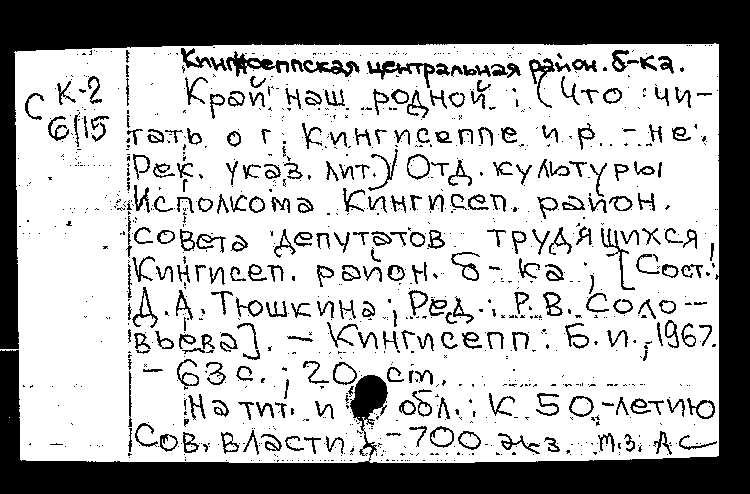 Кингисеппская центральная район. б-ка.
К-2
С 6/15
Край наш родной : (Что чи-
тать о г. Кингисеппе и р-не.
Рек. указ. лит.) / Отд. культуры
Исполкома Кингисеп. район.
совета депутатов трудящихся,
Кингисеп. район. б-ка ; [Сост.:
Д.А. Тюшкина ; Ред.: Р.В. Соло-
вьева]. - Кингисепп : Б.и., 1967.
- 63 с. ; 20 cm.
На тит. и обл.: К 50-летию
Сов. власти. - 700 экз. т.з. ДС